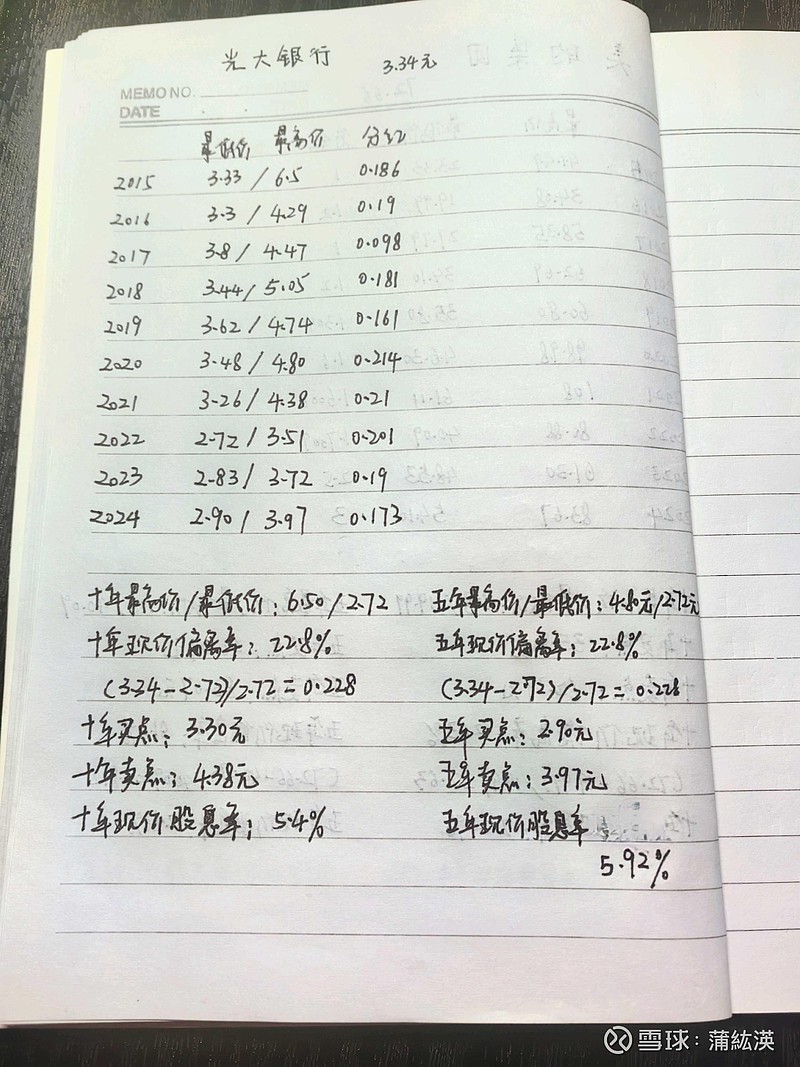 光大银行 3.34元
MEMO NO.
DATE
最低价 最高价 分红
2015 3.33 / 6.5 0.186
2016 3.3 / 4.29 0.19
2017 3.8 / 4.47 0.098
2018 3.44 / 5.05 0.181
2019 3.62 / 4.74 0.161
2020 3.48 / 4.80 0.214
2021 3.26 / 4.38 0.21
2022 2.72 / 3.51 0.201
2023 2.83 / 3.72 0.19
2024 2.90 / 3.97 0.173
十年最高价/最低价：6.50 / 2.72 五年最高价/最低价：4.80元/2.72元
十年现价偏离率：22.8% 五年现价偏离率：22.8%
(3.34-2.72)/2.72=0.228 (3.34-2.72)/2.72=0.228
十年买点：3.30元 五年买点：2.90元
十年卖点：4.38元 五年卖点：3.97元
十年现价股息率：5.4% 五年现价股息率
5.92%
雪球：蒲紘渶